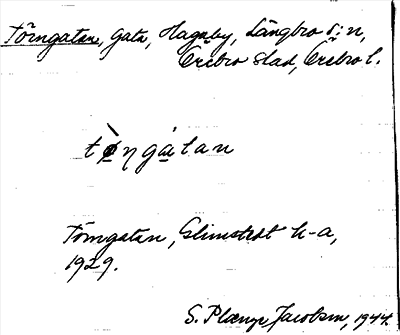 Törngatan, Gata, Hagaby, Längbro s:n,
Örebro stad, Örebro l.
tø̀ŋgátan
Törngatan, Glimstedt h-a,
1929.
S. Plænge Jacobson, 1944.